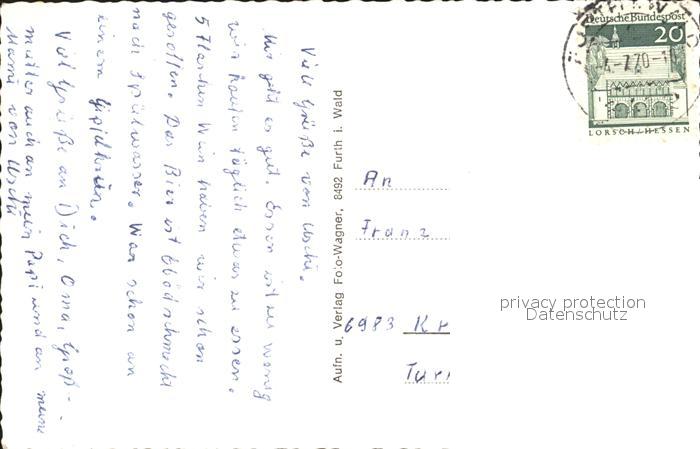 Viele Grüße von Uschi.
Mir geht es gut. Essen ist zu wenig
wir kaufen täglich etwas zu essen.
5 Flaschen Wein haben wir schon
gesoffen. Das Bier ist blöd schmeckt
nach Spülwasser. War schon an
einem Gipfelkreuz.
Viel Grüße an Dich, Oma, Groß-
mutter auch an mein Papi und an meine
Mami von Uschi
Aufn. u. Verlag Foto-Wagner, 8492 Furth i. Wald
An
Franz
6983 Kr
Turi
Deutsche Bundespost
20
-7.70-1
LORSCH/HESSEN
privacy protection
Datenschutz